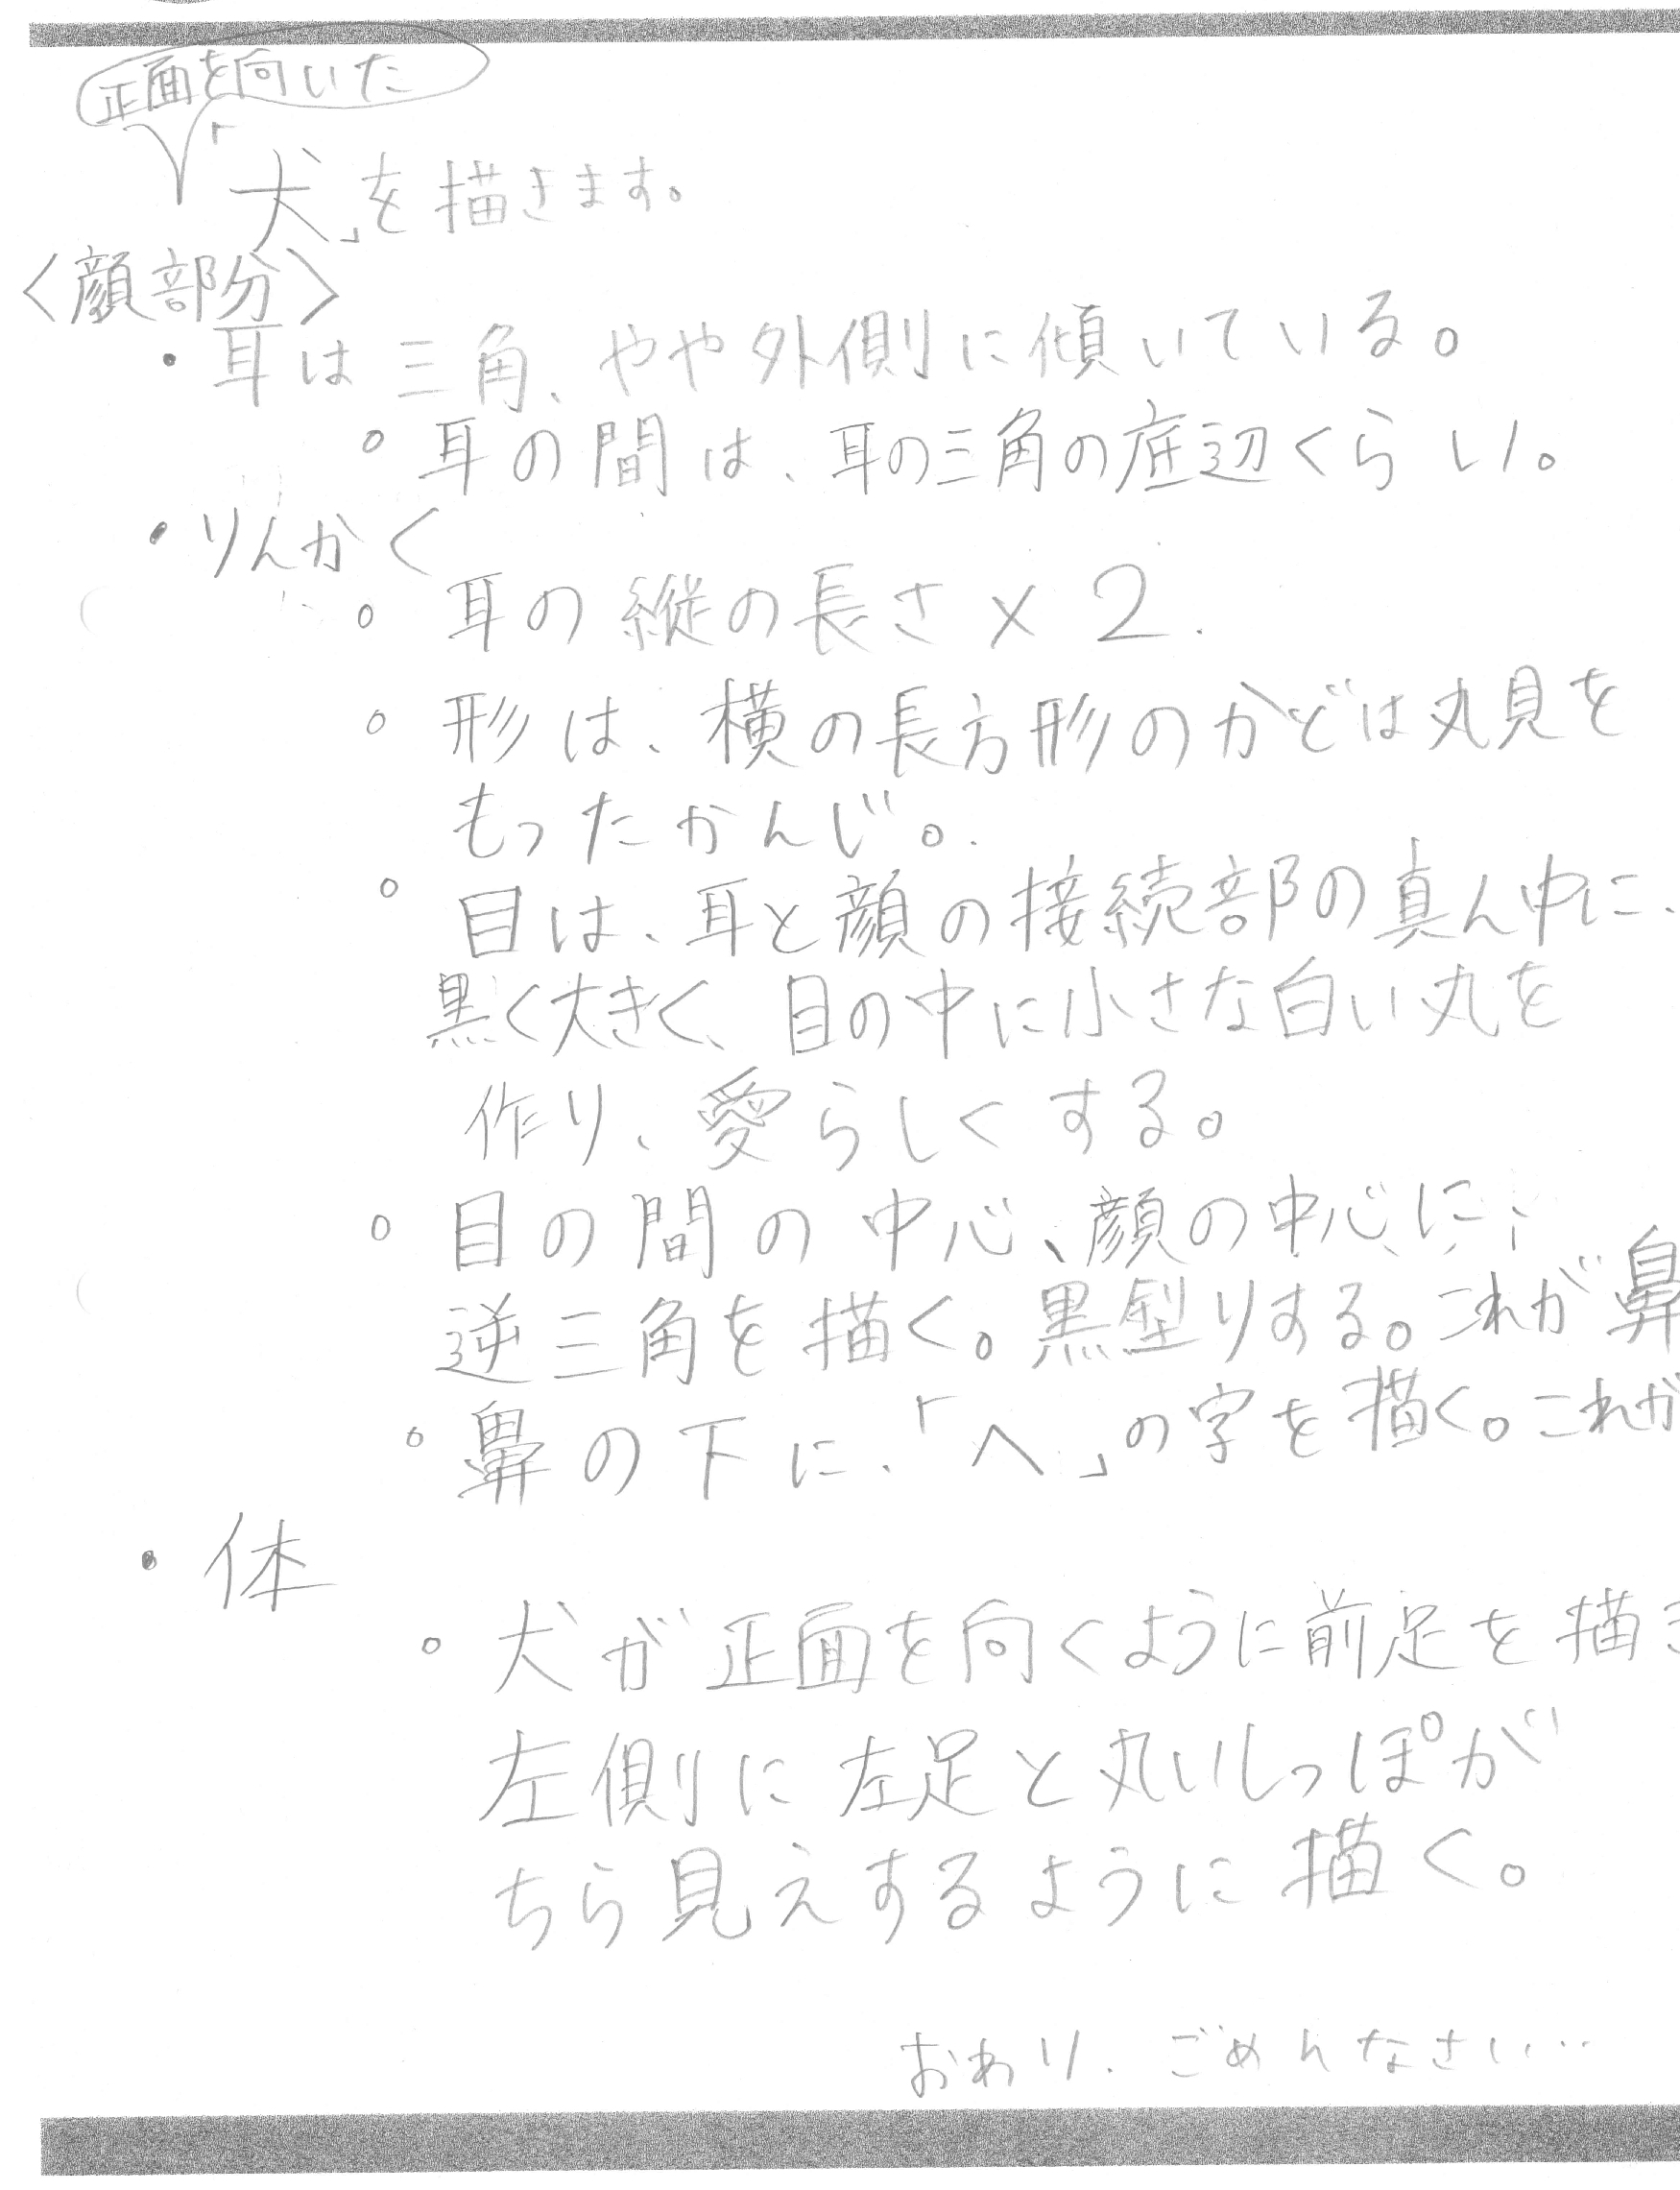 正面を向いた
「犬」を描きます。
〈顔部分〉
・耳は三角、やや外側に傾いている。
。耳の間は、耳の三角の底辺くらい。
・りんかく
。耳の縦の長さ×2.
。形は、横の長方形のかどは丸見を
もったかんじ。
。目は、耳と顔の接続部の真ん中に、
黒く大きく、目の中に小さな白い丸を
作り、愛らしくする。
。目の間の中心、顔の中心に、
逆三角を描く。黒塗りする。これが鼻
。鼻の下に、「へ」の字を描く。これが
・体
。犬が正面を向くように前足を描き
左側に左足と丸いしっぽが
ちら見えするように描く。
おわり.ごめんなさい…